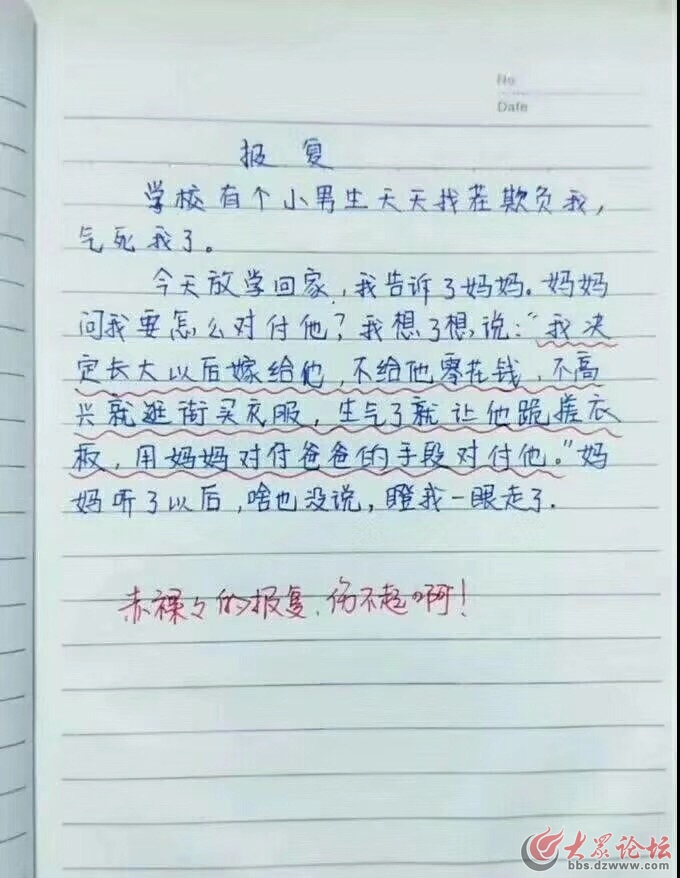 No
Date
报复
学校有个小男生天天找茬欺负我，
气死我了。
今天放学回家，我告诉了妈妈。妈妈
问我要怎么对付他？我想了想，说：“我决
定长大以后嫁给他，不给他零花钱，不高
兴就逛街买衣服，生气了就让他跪搓衣
板，用妈妈对付爸爸的手段对付他。”妈
妈听了以后，啥也没说，瞪我一眼走了.
赤裸々的报复、伤不起啊！
大眾论坛
bbs.dzwww.com